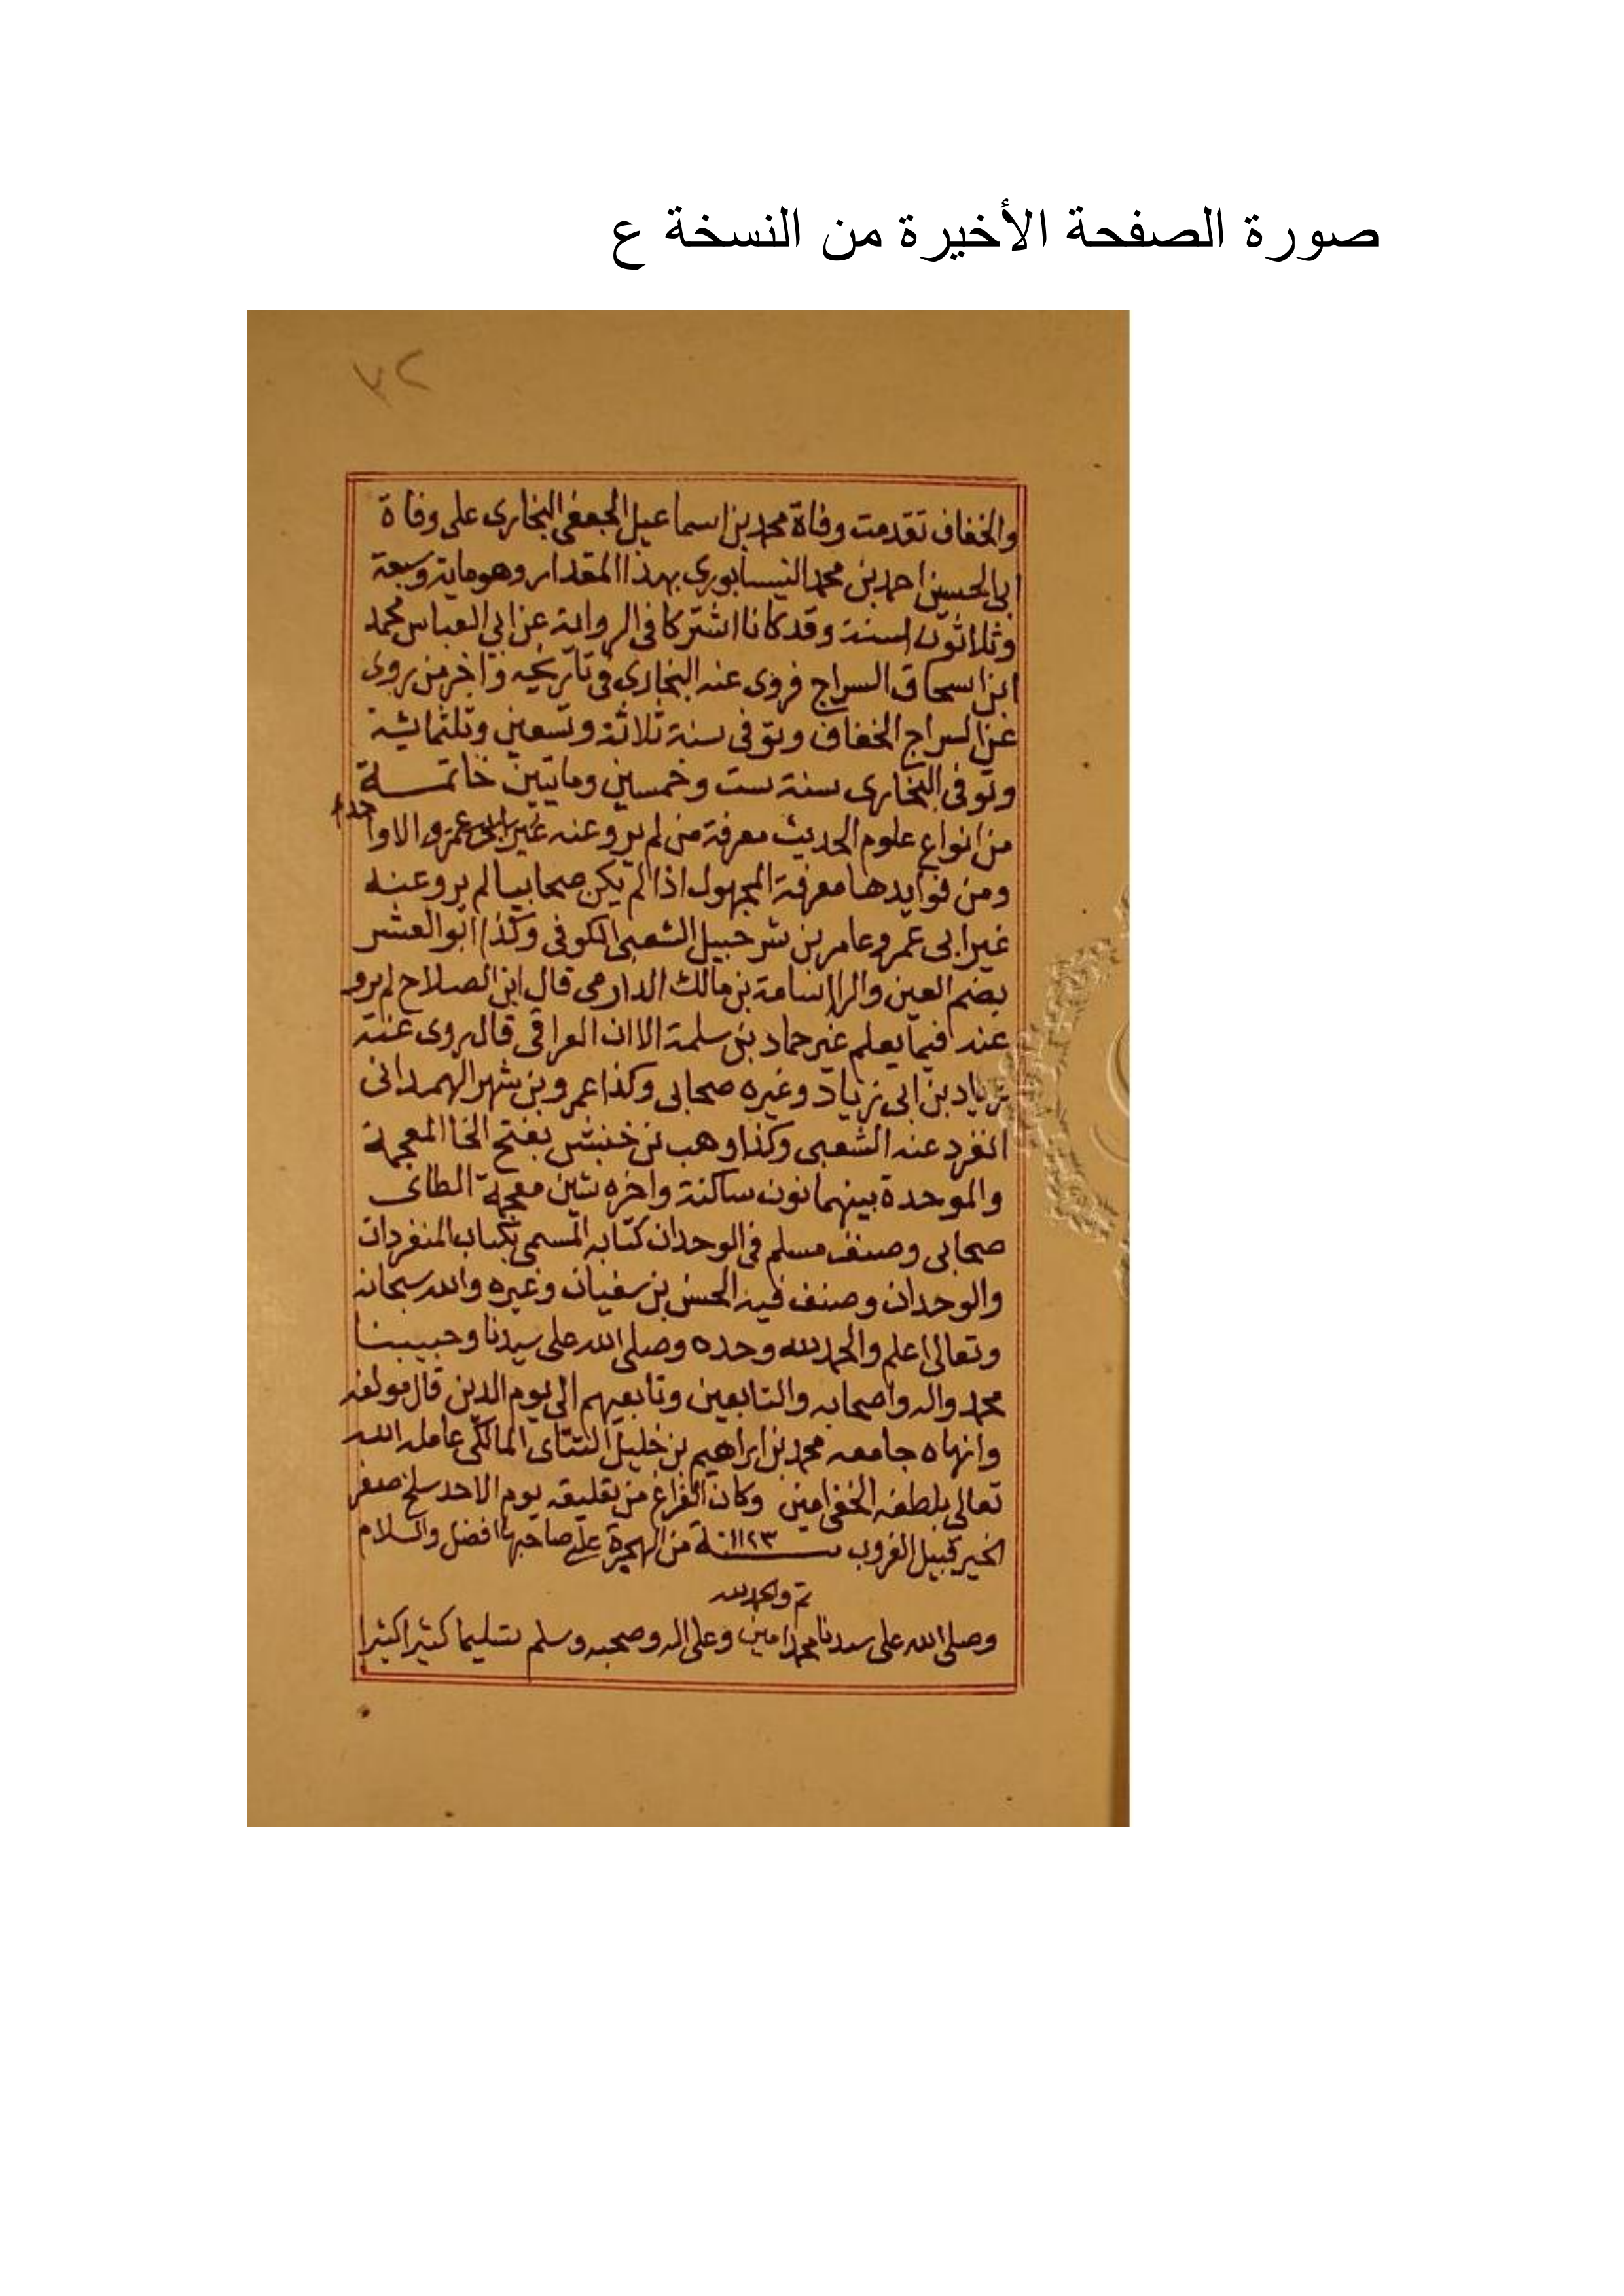 صورة الصفحة الأخيرة من النسخة ع
٣٢
والخفاف تقدمت وفاة محمد بن اسماعيل الجعفى البخارى على وفاة
ابى الحسين احمد بن محمد النيسابورى بهذا المقدار وهو ماية وسبعة
وثلاثون سنة وقد كانا اشتركا فى الرواية عن ابى العباس محمد
ابن اسحاق السراج فروى عنه البخارى فى تاريخيه واخر من روى
عن السراج الخفاف وتوفى سنة ثلاثة وتسعين وثلثمائية
وتوفى البخارى سنة ست وخمسين وماتيين خاتمــة
من انواع علوم الحديث معرفة من لم يرو عنه غير الا واحد
ومن فوايدها معرفة المجهول اذا لم يكن صحابيا لم يرو عنه
غير ابى عمرو عامر بن شرحبيل الشعبى الكوفى وكذا ابو العشر
بضم العين والرا اسامة بن مالك الدارمى قال ابن الصلاح لم يرو
عنه فيما يعلم غير حماد بن سلمة الا ان العراقى قال روى عنه
زياد بن ابى زياد وغيره صحابى وكذا عمرو بن شهر الهمدانى
انفرد عنه الشعبى وكذا وهب بن خنبش بفتح الخا المعجمة
والموحدة بينهما نون ساكنة واخره شين معجمة الطاى
صحابى وصنف مسلم فى الوحدان كتابه المسمى بكتاب المنفردات
والوحدان وصنف فيه الحسن بن سفيان وغيره والله سبحانه
وتعالى اعلم والحمد لله وحده وصلى الله على سيدنا وحبيبنا
محمد واله واصحابه والتابعين وتابعيهم الى يوم الدين قال مولفه
وانهاه جامعه محمد بن ابراهيم بن خليل التتاى المالكى عامله الله
تعالى بلطفه الخفى امين وكان الفراغ من تعليقه يوم الاحد سلخ صفر
الخير قبيل الغروب ســنة ١١٢٣ من الهجرة على صاحبها افضل والسلام
تم والحمد لله
وصلى الله على سيدنا محمد امين وعلى اله وصحبه وسلم تسليما كثيرا كثيرا